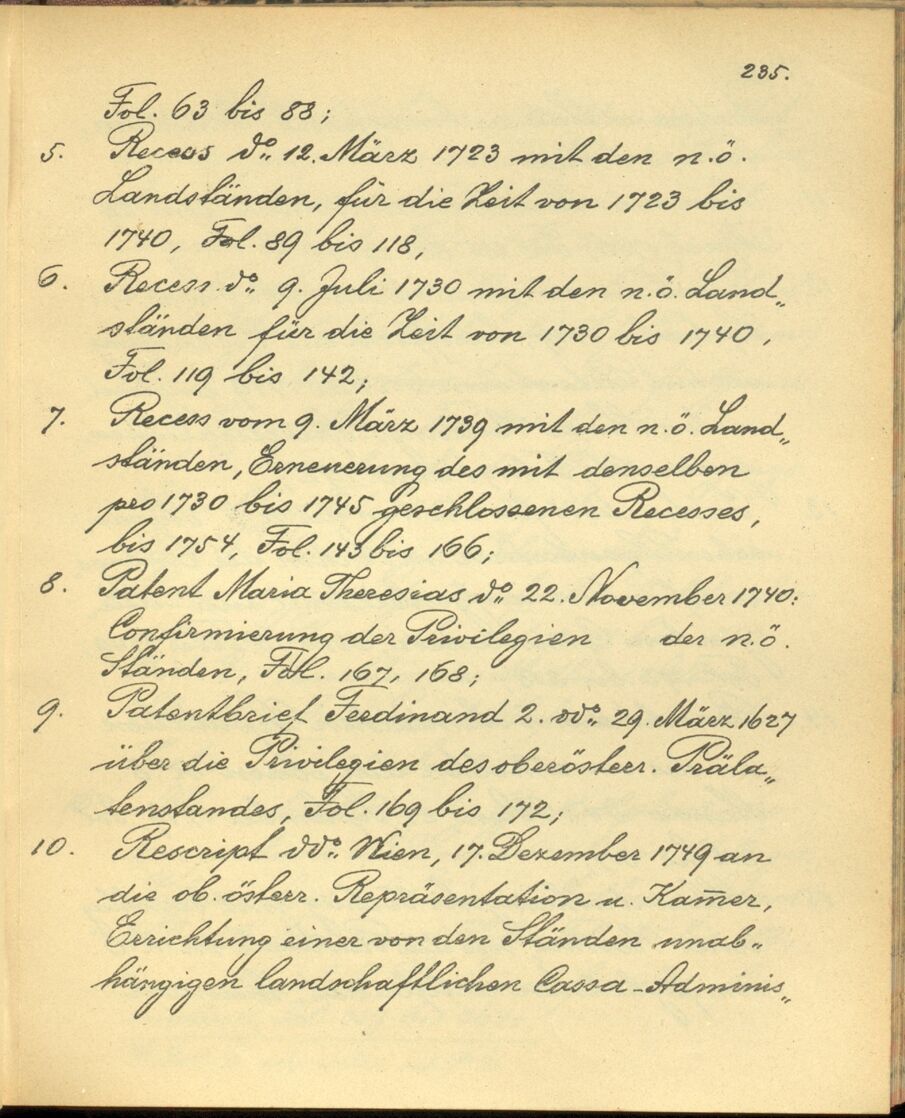 235.
Fol. 63 bis 88;
5. Recess do: 12. März 1723 mit den n.ö.
Landständen, für die Zeit von 1723 bis
1740, Fol. 89 bis 118,
6. Recess do: 9. Juli 1730 mit den n.ö. Land„
ständen für die Zeit von 1730 bis 1740,
Fol. 119 bis 142;
7. Recess vom 9. März 1739 mit den n.ö. Land„
ständen, Erneuerung des mit denselben
pro 1730 bis 1745 geschlossenen Recesses,
bis 1754, Fol. 143 bis 166;
8. Patent Maria Theresias do: 22. November 1740:
Confirmierung der Privilegien der n.ö.
Ständen, Fol. 167, 168;
9. Patentbrief Ferdinand 2. ddo: 29. März 1627
über die Privilegien des oberösterr. Präla„
tenstandes, Fol. 169 bis 172;
10. Rescript ddo: Wien, 17. Dezember 1749 an
die ob. österr. Repräsentation u. Kam̅er,
Errichtung einer von den Ständen unab„
hängigen landschaftlichen Cassa-Adminis„